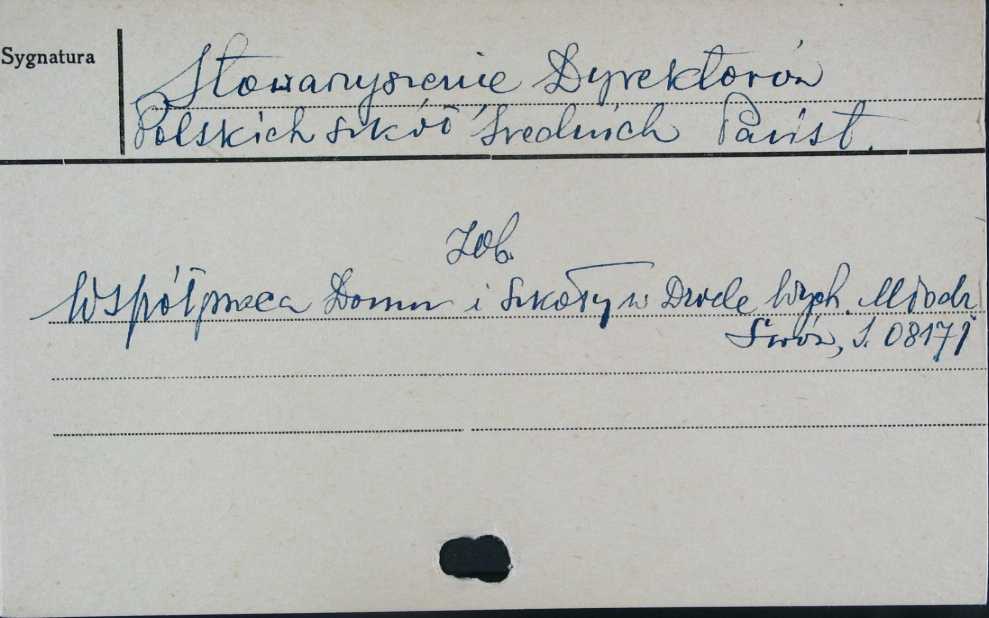 Sygnatura
Stowarzyszenie Dyrektorów
Polskich szkół Średnich Państ.
Zob.
Współpraca Domu i Szkoły w Dziele Wych. Młodz.
Lwów, S. 08171